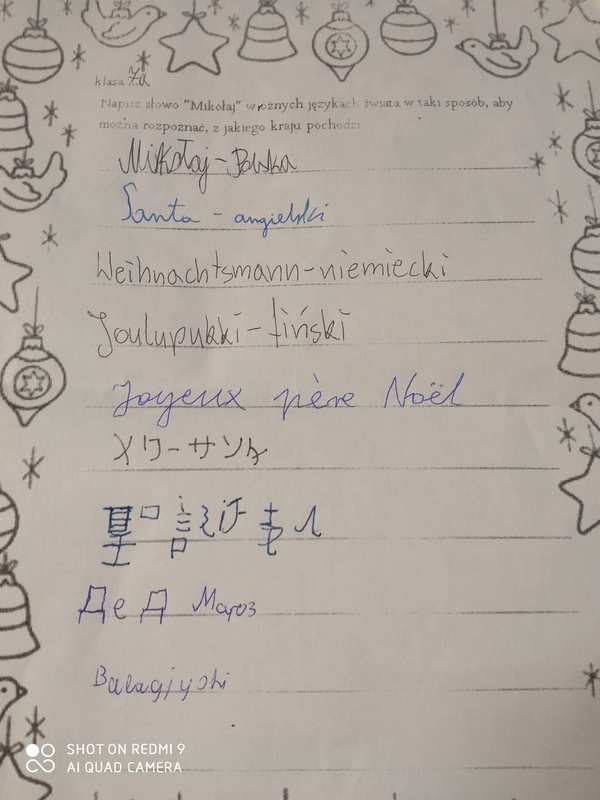 klasa 7a
Napisz słowo "Mikołaj" w różnych językach świata w taki sposób, aby
można rozpoznać, z jakiego kraju pochodzi
Mikołaj - Polska
Santa - angielski
Weihnachtsmann - niemiecki
Joulupukki - fiński
Joyeux père Noël
メリーサンタ
Дед Мароз
SHOT ON REDMI 9
AI QUAD CAMERA